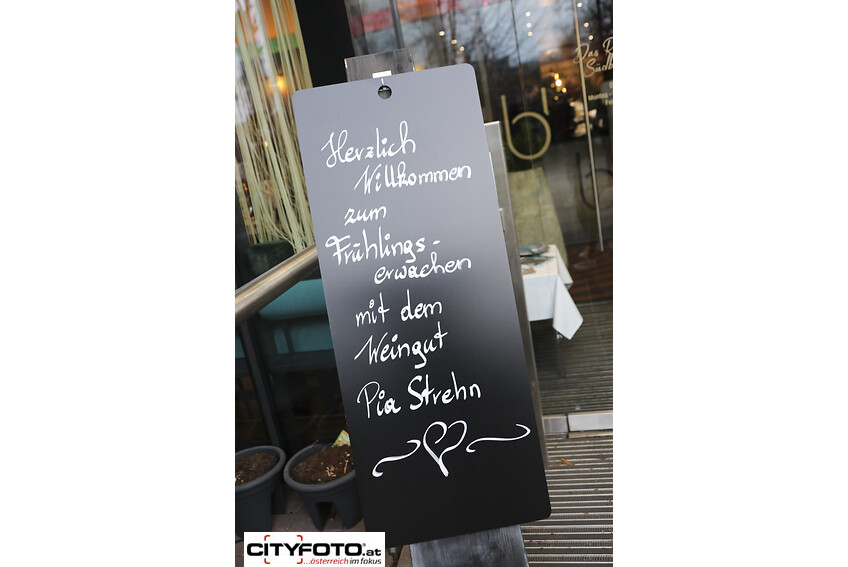 Herzlich
Willkommen
zum
Frühlings-
erwachen
mit dem
Weingut
Pia Strehn
b
CITYFOTO.at
...österreich im fokus